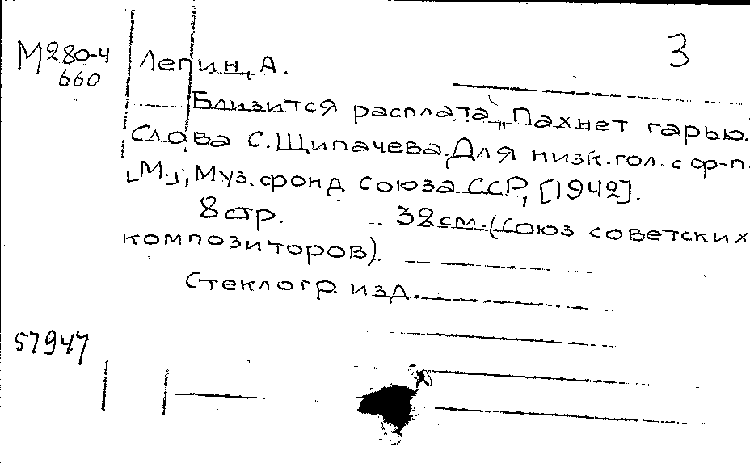 3
М280-4
660
Лепин, А.
Близится расплата, Пахнет гарью.
Слова С. Щипачева. Для низк. гол. с ф-п.
[М], Муз. фонд союза ССР, [1942].
8 стр. 38 см. (союз советских
композиторов).
Стеклогр. изд.
57947